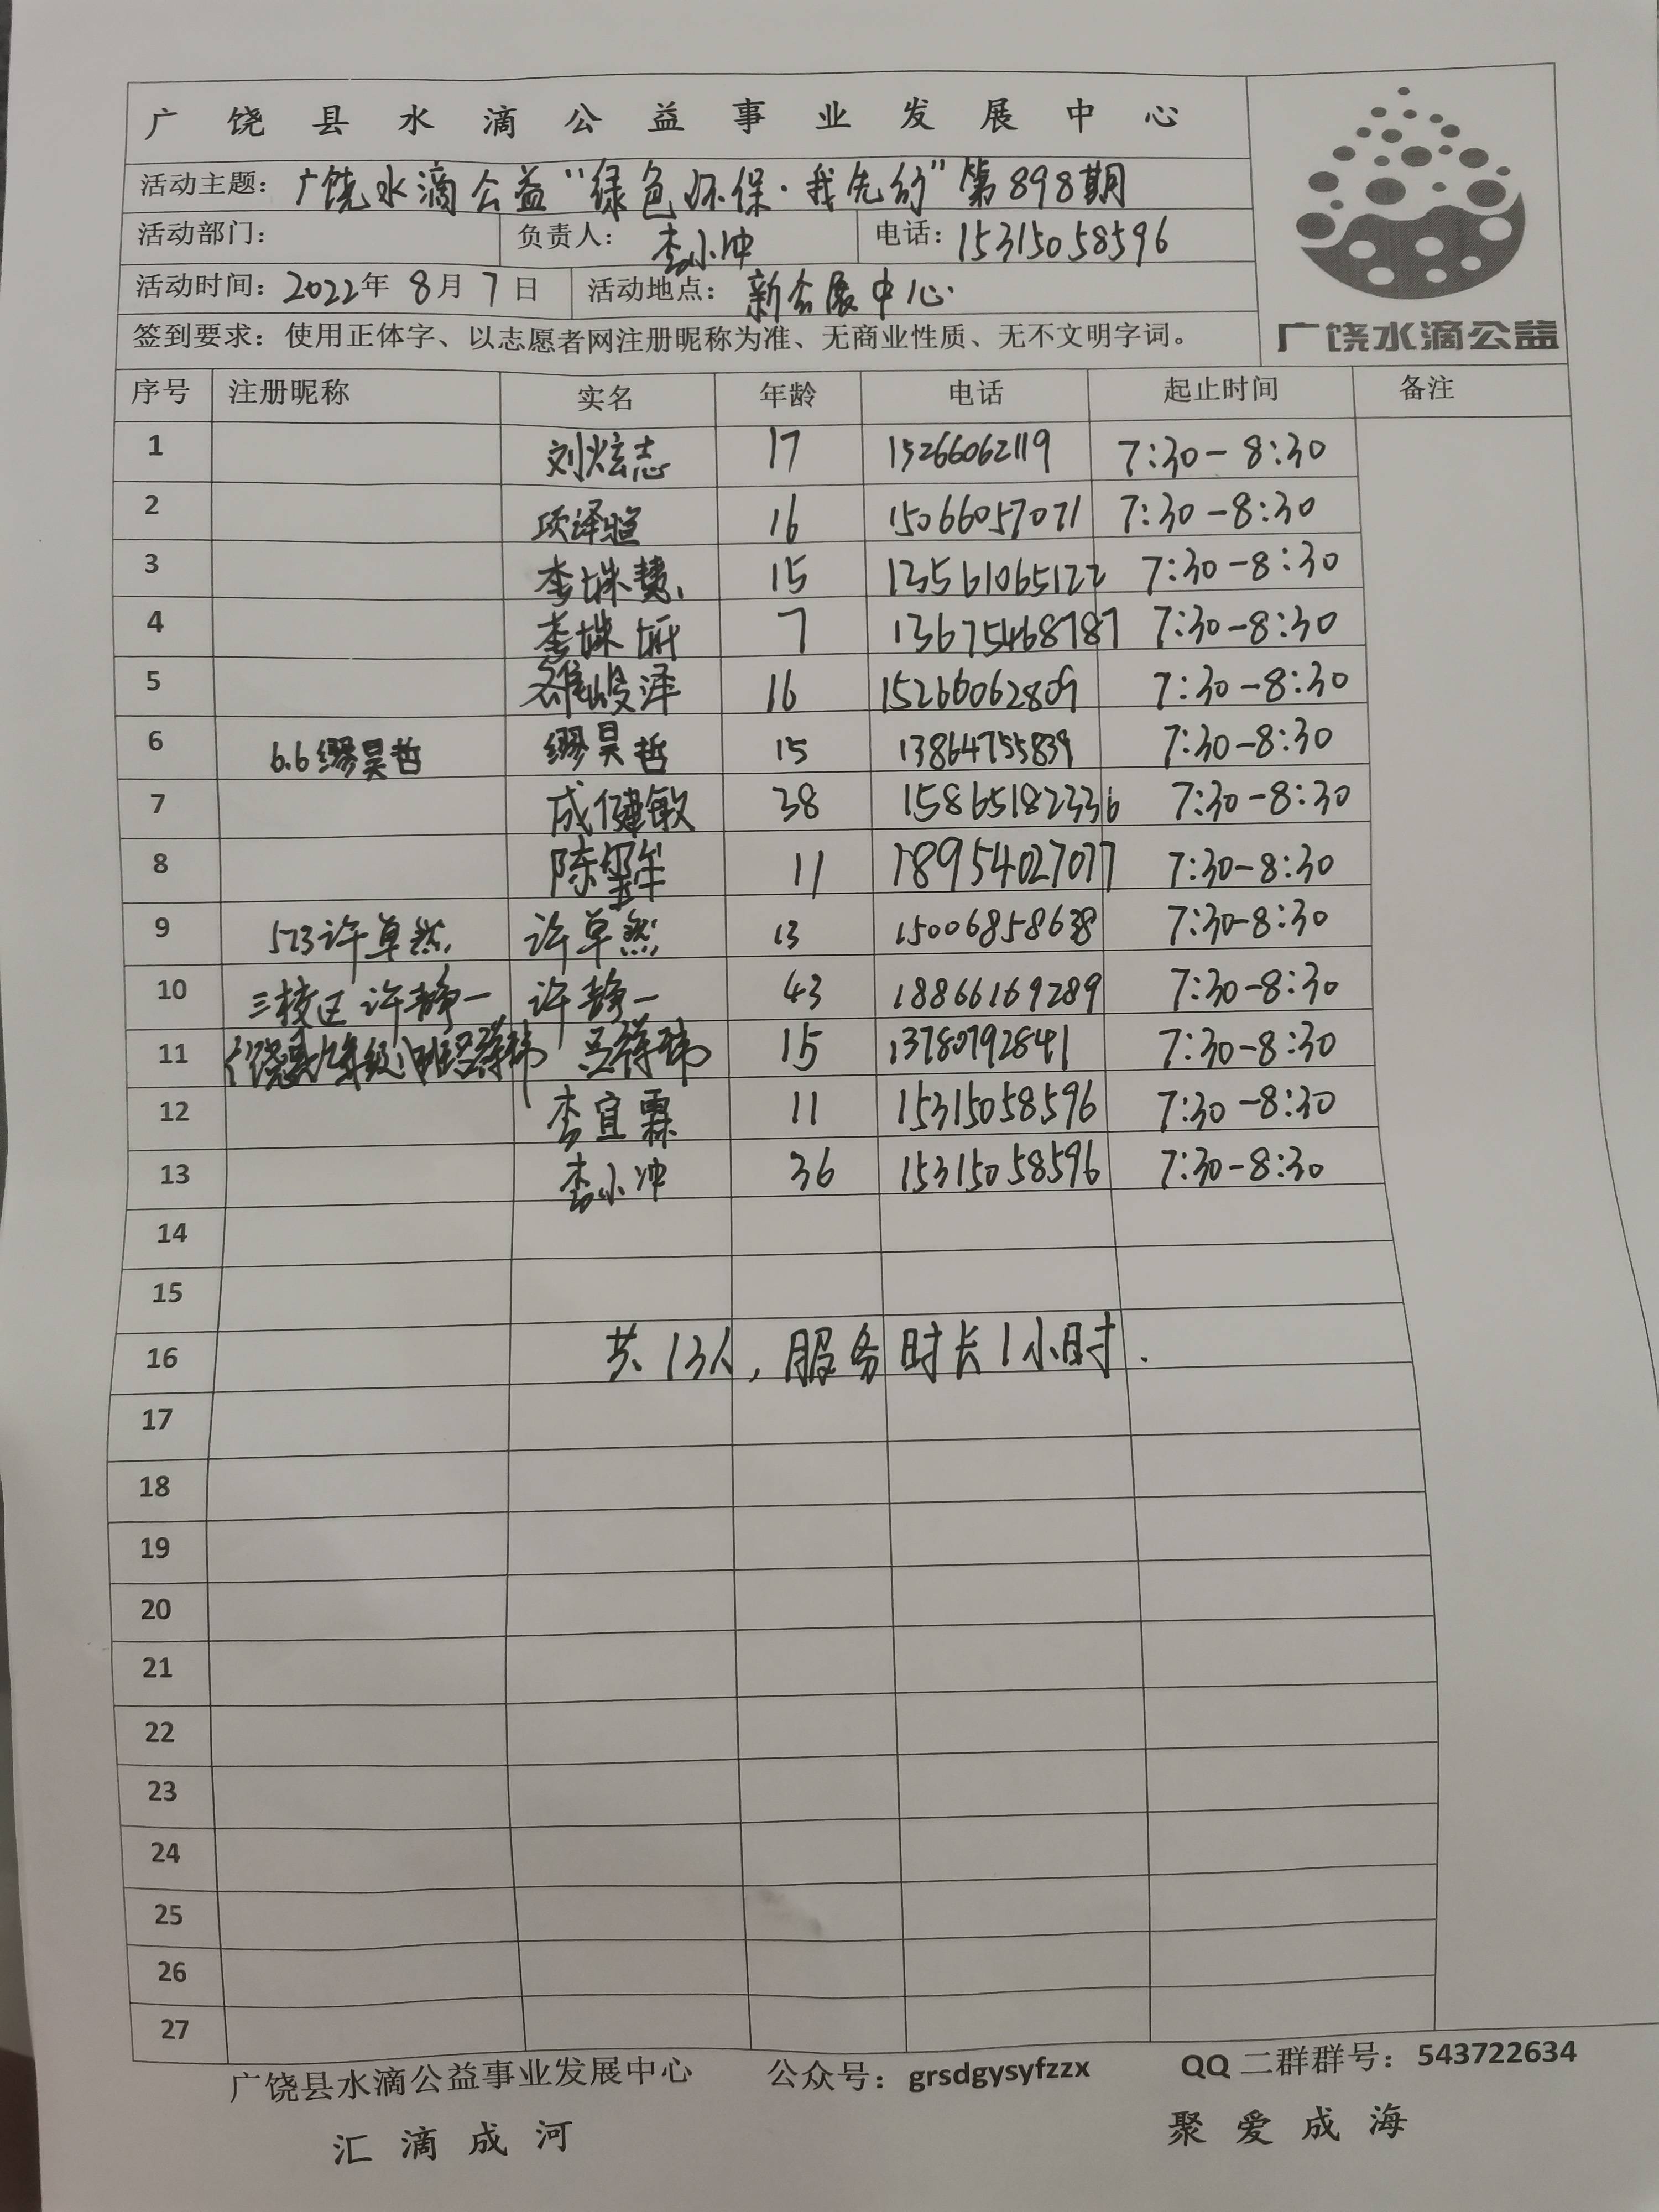 广饶县水滴公益事业发展中心
活动主题：广饶水滴公益“绿色环保·我先行”第898期
活动部门： 负责人：李小冲 电话：15315058596
活动时间：2022年8月7日 活动地点：新会展中心
广饶水滴公益
签到要求：使用正体字、以志愿者网注册昵称为准、无商业性质、无不文明字词。
序号 注册昵称 实名 年龄 电话 起止时间 备注
1 刘炫志 17 15266062119 7:30-8:30
2 16 15066057071 7:30-8:30
3 李姝慧 15 13561065122 7:30-8:30
4 李姝妍 7 13675468787 7:30-8:30
5 16 15266062809 7:30-8:30
6 6.6缪昊哲 缪昊哲 15 13864755839 7:30-8:30
7 成健敏 38 15865182336 7:30-8:30
8 陈 11 18954027077 7:30-8:30
9 573许卓然 许卓然 13 15006858638 7:30-8:30
10 三校区许静一 许静一 43 18866169289 7:30-8:30
11 15 13780792841 7:30-8:30
12 李宜霖 11 15315058596 7:30-8:30
13 李小冲 36 15315058596 7:30-8:30
14
15
16 共13人，服务时长1小时.
17
18
19
20
21
22
23
24
25
26
27
广饶县水滴公益事业发展中心 公众号：grsdgysyfzzx QQ二群群号：543722634
汇滴成河 聚爱成海